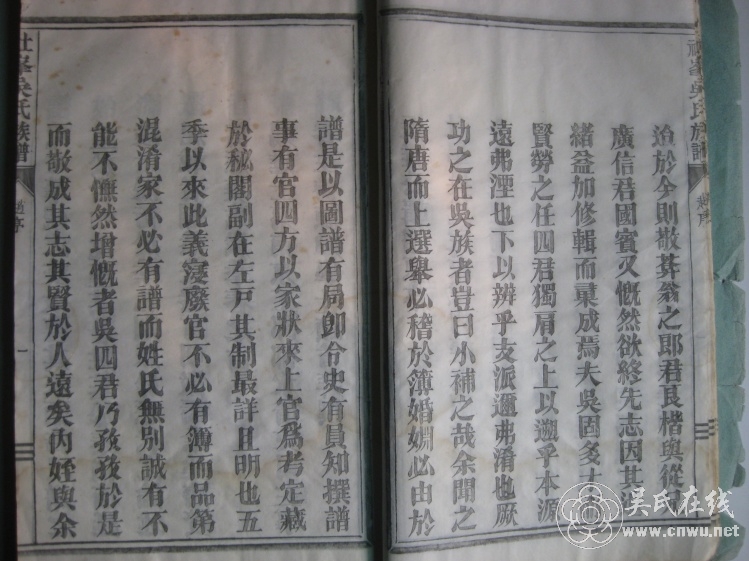 迨於今則敬葬翁之郎君良楷與從
廣信君國賓又慨然欲終先志因其
緒益加修輯而彙成焉夫吳固多
賢勞之任四君獨肩之上以遡乎本派
遠弗湮也下以辨乎支派邇弗淆也厥
功之在吳族者豈曰小補之哉余聞之
隋唐而上選舉必稽於簿婚姻必由於
吳氏族譜
趙序
譜是以圖譜有局郎令史有員知撰譜
事有官四方以家狀來上官爲考定藏
於秘閣副在左戸其制最詳且明也五
季以來此義寖廢官不必有簿而品第
混淆家不必有譜而姓氏無別誠有不
能不憮然增慨者吳四君乃孜孜於是
而敬成其志其賢於人遠矣內姪與余
峯吳氏族譜
趙序
一
吳氏在线
www.cnwu.net